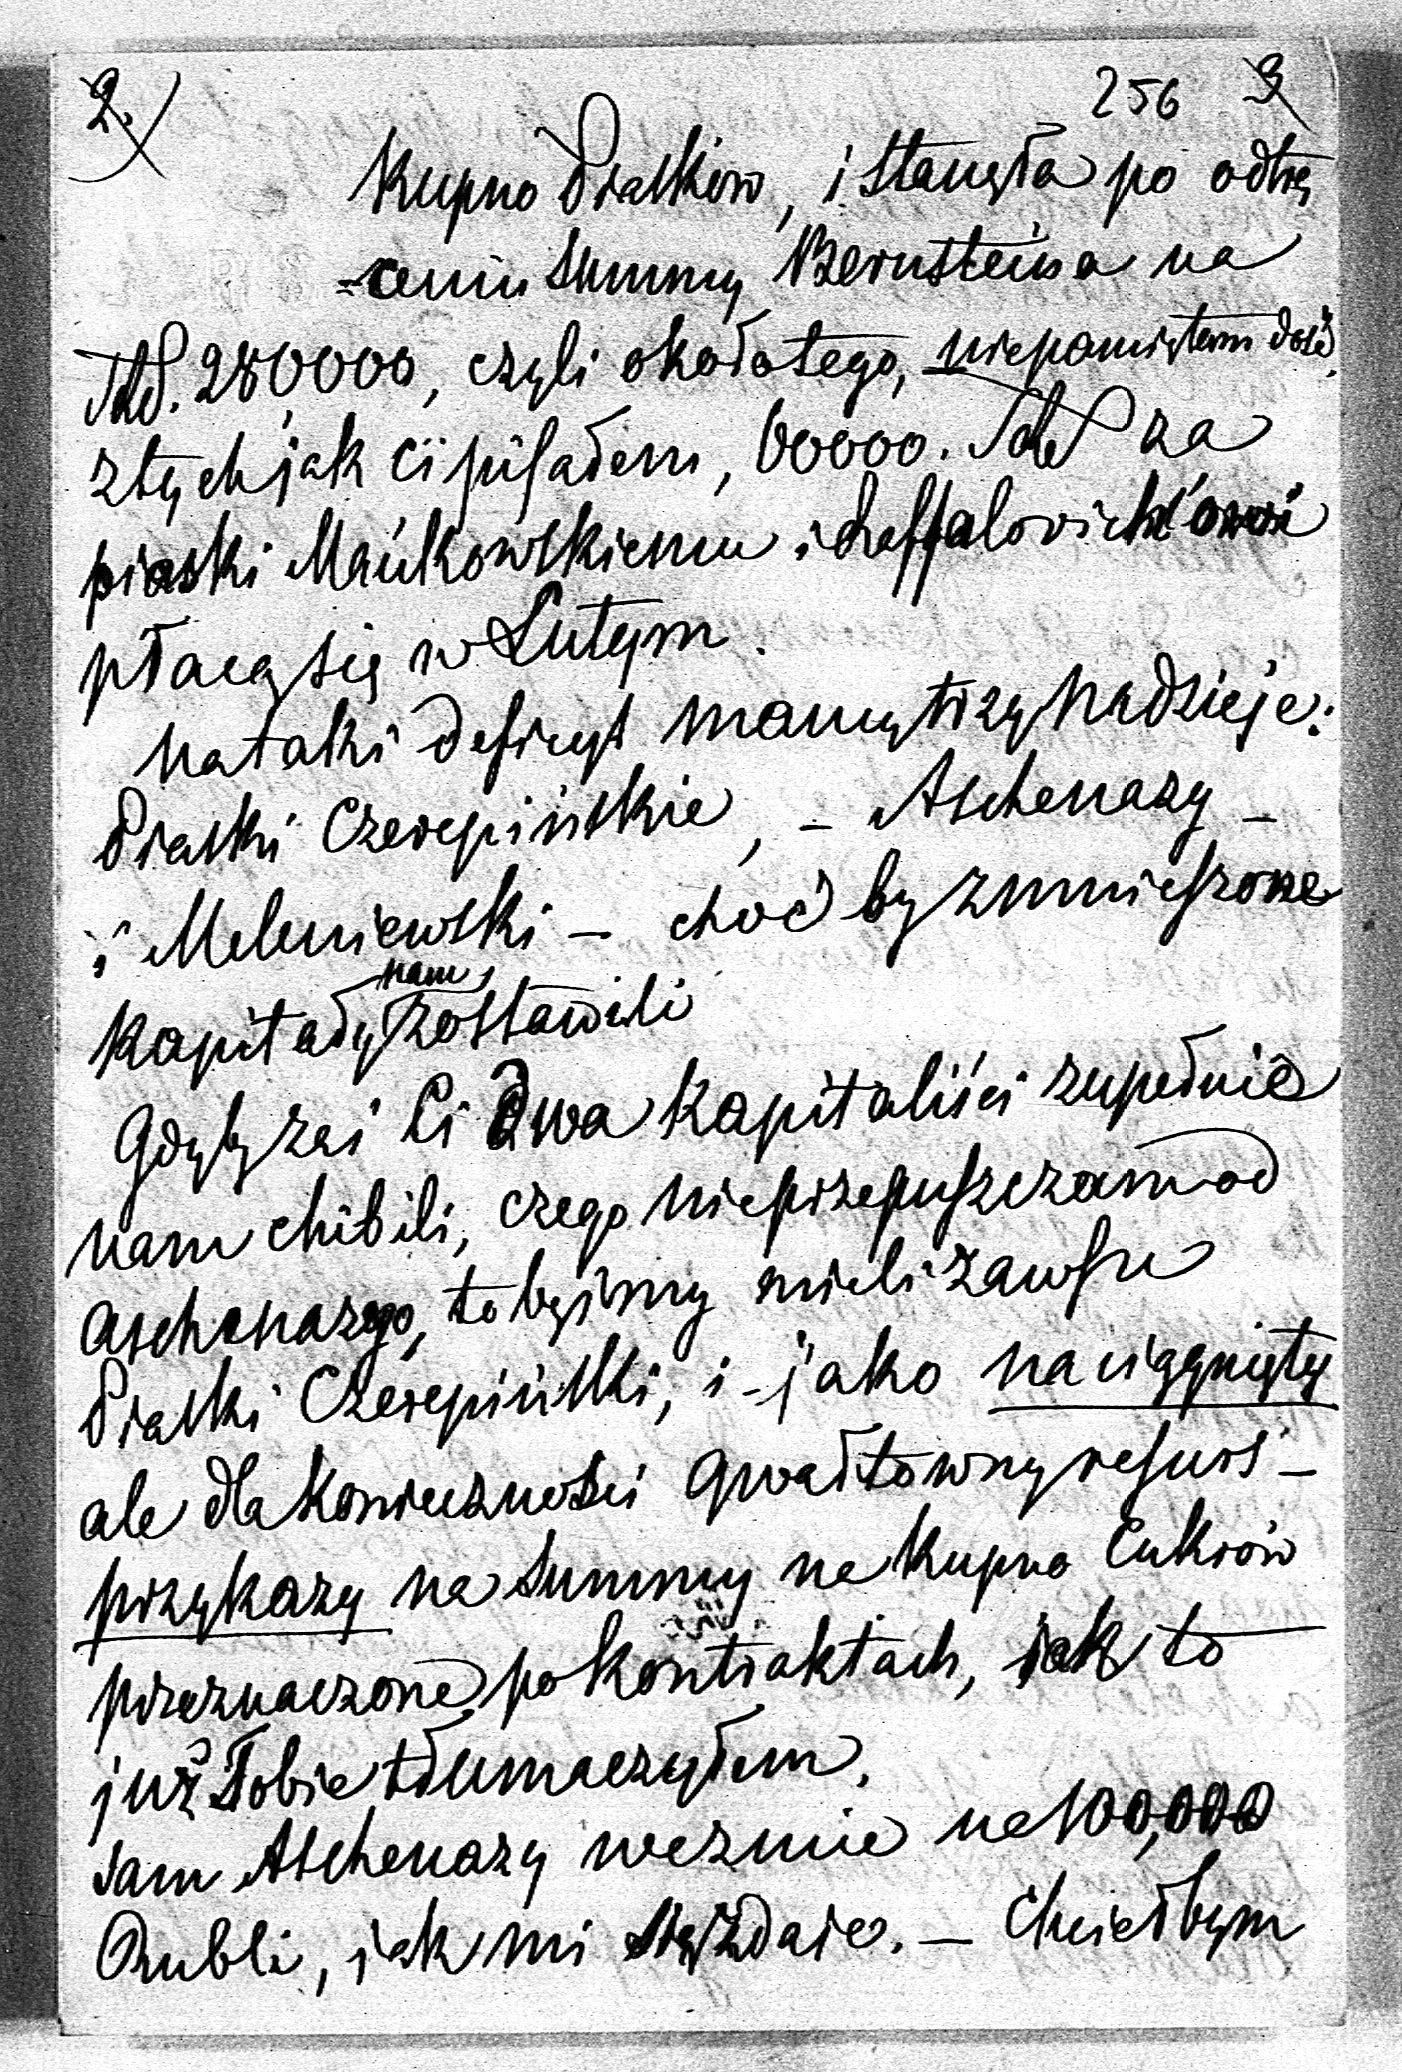 2. 256 3
Kupno Piasków, i stanęła po odtrą
=ceniu Summy Bernsteina na
Rbl. 280,000, czyli okołotego, niepamiętam dość,
z tych jak ci pisałem, 60000. Rbl za
piaski Mańkowskiemu i Raffalovich'owi
płacą się w Lutym.
Na taki deficyt mamy trzy nadzieje:
Piaski Czerepińskie, – Aschenazy –
i Meleniewski – choć by zmnieszone
kapitały nam zostawili
Gdyby zaś Ci dwa kapitaliści zupełnie
nam chibili, czego nieprzepuszczam od
Aschenazego, to byśmy mieli zawsze
Piaski Czerepiński, i – jako naciągnięty
ale dla konieczności gwałtowny resurs –
przykazy na Summy na kupno Cukrów
przeznaczone po kontraktach, jak to
już Tobie tłumaczyłem.
Sam Aschenazy wezmie na 100,000
Rubli, jak mi się zdaie. – Chciałbym